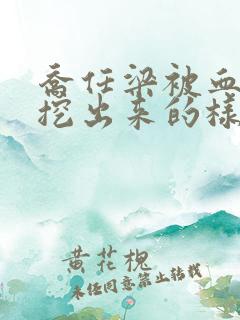 喬任梁被血
挖出来的樣
黄花槐
未经同意禁止转载